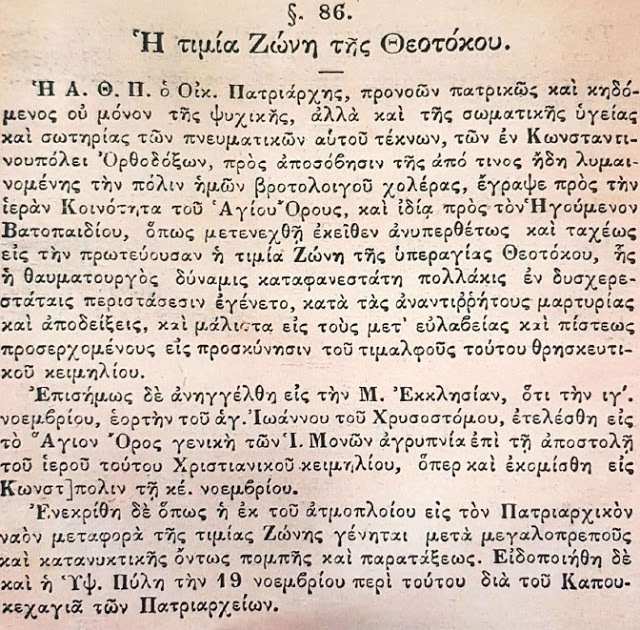 §. 86.
Ἡ τιμία Ζώνη τῆς Θεοτόκου.
Ἡ Α. Θ. Π. ὁ Οἰκ. Πατριάρχης, προνοῶν πατρικῶς καὶ κηδό-
μενος οὐ μόνον τῆς ψυχικῆς, ἀλλὰ καὶ τῆς σωματικῆς ὑγείας
καὶ σωτηρίας τῶν πνευματικῶν αὑτοῦ τέκνων, τῶν ἐν Κωνσταντι-
νουπόλει Ὀρθοδόξων, πρὸς ἀποσόβησιν τῆς ἀπό τινος ἤδη λυμαι-
νομένης τὴν πόλιν ἡμῶν βροτολοιγοῦ χολέρας, ἔγραψε πρὸς τὴν
ἱερὰν Κοινότητα τοῦ Ἁγίου Ὄρους, καὶ ἰδίᾳ πρὸς τὸν Ἡγούμενον
Βατοπαιδίου, ὅπως μετενεχθῇ ἐκεῖθεν ἀνυπερθέτως καὶ ταχέως
εἰς τὴν πρωτεύουσαν ἡ τιμία Ζώνη τῆς ὑπεραγίας Θεοτόκου, ἧς
ἡ θαυματουργὸς δύναμις καταφανεστάτη πολλάκις ἐν δυσχερε-
στάταις περιστάσεσιν ἐγένετο, κατὰ τὰς ἀναντιῤῥήτους μαρτυρίας
καὶ ἀποδείξεις, καὶ μάλιστα εἰς τοὺς μετ' εὐλαβείας καὶ πίστεως
προσερχομένους εἰς προσκύνησιν τοῦ τιμαλφοῦς τούτου θρησκευτι-
κοῦ κειμηλίου.
Ἐπισήμως δὲ ἀνηγγέλθη εἰς τὴν Μ. Ἐκκλησίαν, ὅτι τὴν ιγʹ.
νοεμβρίου, ἑορτὴν τοῦ ἁγ. Ἰωάννου τοῦ Χρυσοστόμου, ἐτελέσθη εἰς
τὸ Ἅγιον Ὄρος γενικὴ τῶν Ἱ. Μονῶν ἀγρυπνία ἐπὶ τῇ ἀποστολῇ
τοῦ ἱεροῦ τούτου Χριστιανικοῦ κειμηλίου, ὅπερ καὶ ἐκομίσθη εἰς
Κωνστ]πολιν τῇ κέ. νοεμβρίου.
Ἐνεκρίθη δὲ ὅπως ἡ ἐκ τοῦ ἀτμοπλοίου εἰς τὸν Πατριαρχικὸν
ναὸν μεταφορὰ τῆς τιμίας Ζώνης γένηται μετὰ μεγαλοπρεποῦς
καὶ κατανυκτικῆς ὄντως πομπῆς καὶ παρατάξεως. Εἰδοποιήθη δὲ
καὶ ἡ Ὑψ. Πύλη τὴν 19 νοεμβρίου περὶ τούτου διὰ τοῦ Καπου-
κεχαγιᾶ τῶν Πατριαρχείων.